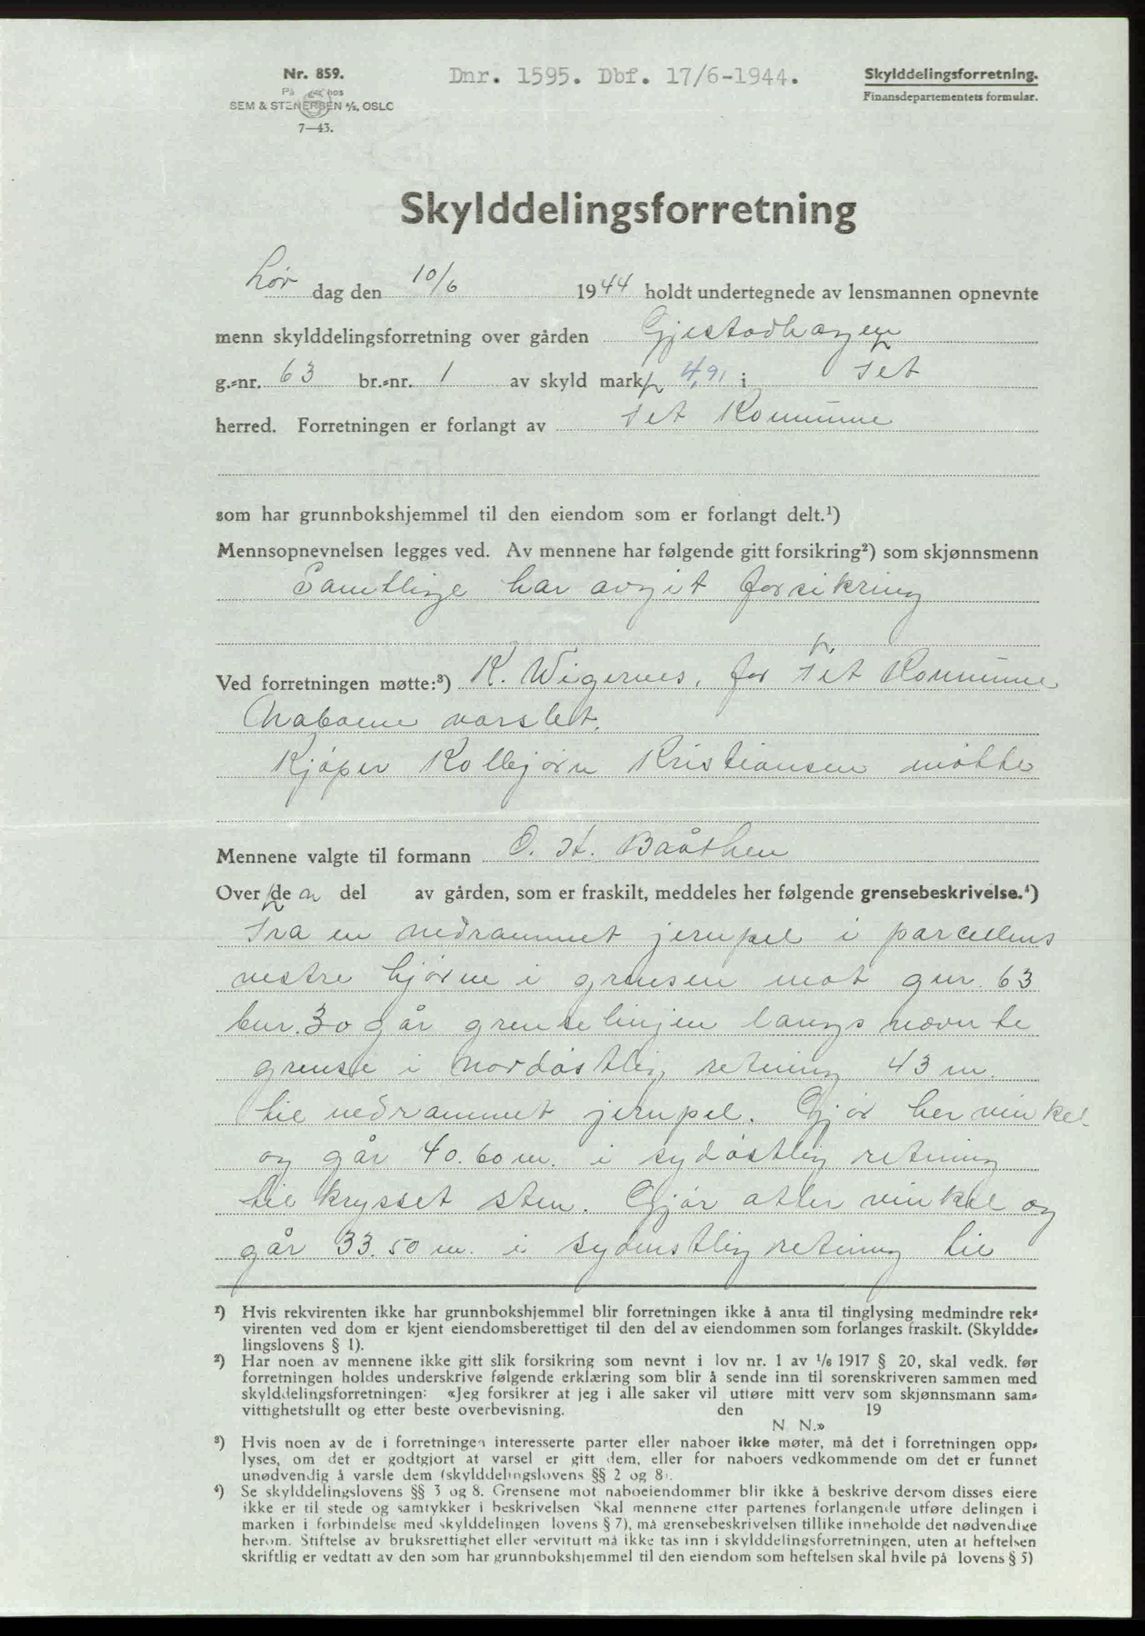 Nr. 859.
På lager hos
SEM & STENERSEN A/S, OSLO
7—43.
Dnr. 1595. Dbf. 17/6-1944.
Skylddelingsforretning.
Finansdepartementets formular.
Skylddelingsforretning
Lør dag den 10/6 1944 holdt undertegnede av lensmannen opnevnte
menn skylddelingsforretning over gården Gjestadhagen
g.-nr. 63 br.-nr. 1 av skyld mark 4,91 i Fet
herred. Forretningen er forlangt av Fet Kommune
som har grunnbokshjemmel til den eiendom som er forlangt delt.¹)
Mennsopnevnelsen legges ved. Av mennene har følgende gitt forsikring²) som skjønnsmenn
Samtlige har avgit forsikring
Ved forretningen møtte:³) K. Wigernes, for Fet Kommune
Naboene varslet.
Kjøper Kolbjørn Kristiansen møtte
Mennene valgte til formann O. H. Baåthen
Over de n del av gården, som er fraskilt, meddeles her følgende grensebeskrivelse.⁴)
Fra en nedrammet jernpel i parcellens
vestre hjørne i grensen mot gnr. 63
bnr. 30 går grenselinjen langs nævnte
grense i nordøstlig retning 43 m.
til nedrammet jernpel. Gjør her vinkel
og går 40.60 m. i sydøstlig retning
til krysset sten. Gjør atter vinkel og
går 33.50 m. i sydvestlig retning til
¹) Hvis rekvirenten ikke har grunnbokshjemmel blir forretningen ikke å anta til tinglysing medmindre rek-
virenten ved dom er kjent eiendomsberettiget til den del av eiendommen som forlanges fraskilt. (Skyldde-
lingslovens § 1).
²) Har noen av mennene ikke gitt slik forsikring som nevnt i lov nr. 1 av 1/6 1917 § 20, skal vedk. før
forretningen holdes underskrive følgende erklæring som blir å sende inn til sorenskriveren sammen med
skylddelingsforretningen: «Jeg forsikrer at jeg i alle saker vil utføre mitt verv som skjønnsmann sam-
vittighetsfullt og etter beste overbevisning. den 19
N. N.»
³) Hvis noen av de i forretningen interesserte parter eller naboer ikke møter, må det i forretningen opp-
lyses, om det er godtgjort at varsel er gitt dem, eller for naboers vedkommende om det er funnet
unødvendig å varsle dem (skylddelingslovens §§ 2 og 8).
⁴) Se skylddelingslovens §§ 3 og 8. Grensene mot naboeiendommer blir ikke å beskrive dersom disses eiere
ikke er til stede og samtykker i beskrivelsen Skal mennene etter partenes forlangende utføre delingen i
marken i forbindelse med skylddelingen lovens § 7), må grensebeskrivelsen tillike inneholde det nødvendige
herom. Stiftelse av bruksrettighet eller servitutt må ikke tas inn i skylddelingsforretningen, uten at heftelsen
skriftlig er vedtatt av den som har grunnbokshjemmel til den eiendom som heftelsen skal hvile på lovens § 5)